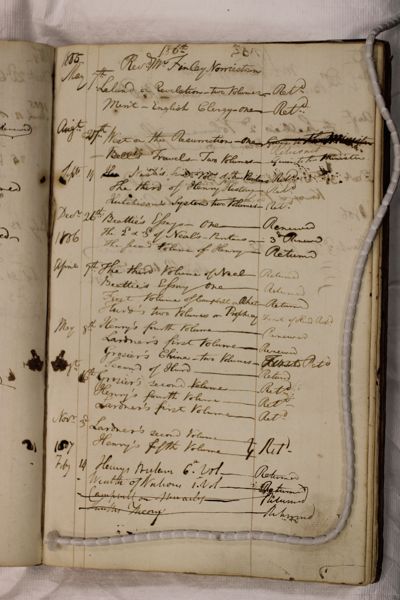 1805
Revd Mr Finley Norriston
May 7th
Leland on Revelation - two Volumes - Retd
- English Clergy - one - Retd
Augt 27th West on the Resurrection - one
Travels - Two Volumes -
Sept 14
The third of Henry History - Retd
System two Volumes - Retd
Decr 26th Beattie's Essays - one - Renewed
1806 The 2 & 3 of Neal's - Puritans - 3 Renewed
The second Volume of Henry - Returned
April 7th The third Volume of Neal Returned
Beattie's Essay one - Returned
First Volume of Campbell - Returned
Hurd's two Volumes on Prophecy
May 8th Henry's fourth Volume - Renewed
Lardner's first Volume - Renewed
Grosier's China - two Volumes - First Retd
Second of Hurd Returd
Grosier's second Volume Retd
Henry's fourth Volume Retd
Lardner's first Volume Retd
Novr 3d Lardner's second Volume
Henry's fifth Volume Retd
1807
Feby 14 Henry's 6th Vol - Returned
Wealth of Nations 1st Vol - Returned
Campbell on Miracles Returned
Theory Returned